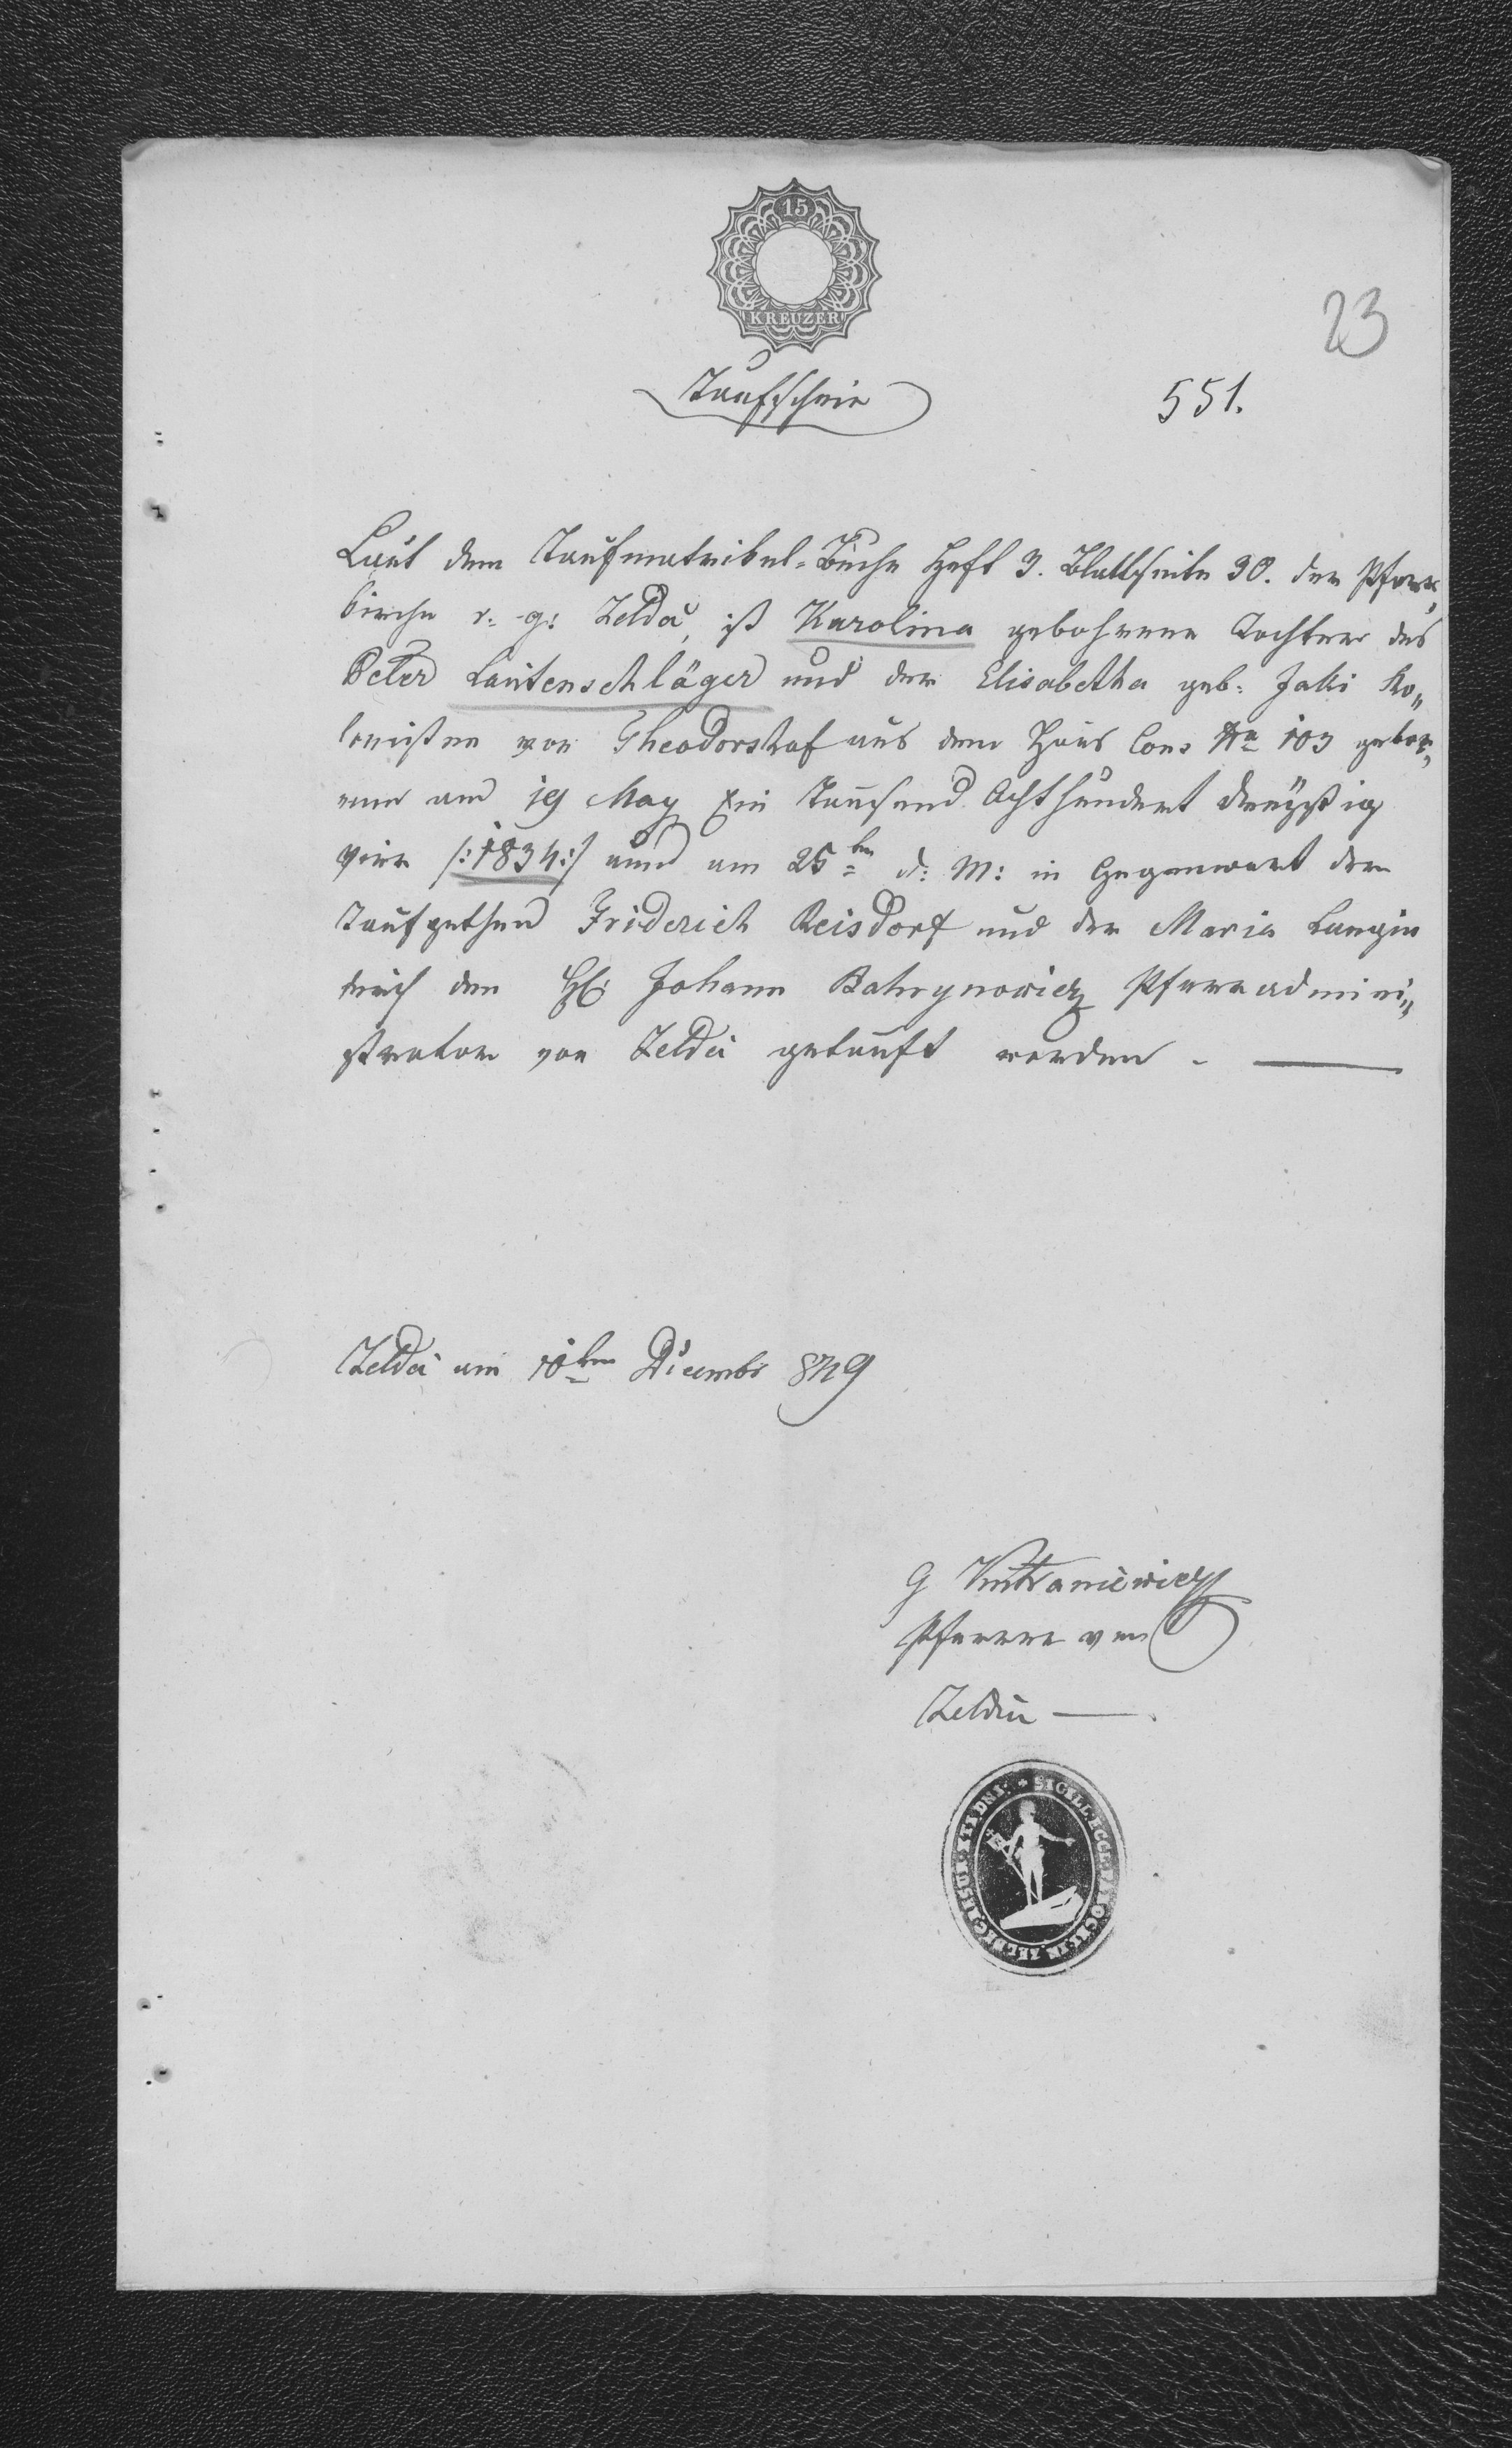 15
KREUZER
23
Taufschein
551.
Laut dem Taufmatrikel-Buche Heft 3. Blattseite 30. der Pfarr„
kirche r: g: Zeldci, ist Karolina gebohrene Tochter des
Peter Lautenschläger und der Elisabetha geb: Jaki Ko„
lonisten von Theodorshof aus dem Haus Cons Nro 103 gebor„
nen am 19 May Ein Tausend Achthundert dreyßig
vier /:1834:/ und am 25ten d: M: in Gegenwart der
Taufpathen Friderich Reisdorf und der Maria Langin
durch den H: Johann Bahrynowicz Pfarradmini„
strator von Zeldci getauft worden. —
Zeldci am 10ten Dicembr 849
G
Pfarrer von
Zeldci —.
SIGILL. ECCL. PAROCH. IN ZELDEC DNI.